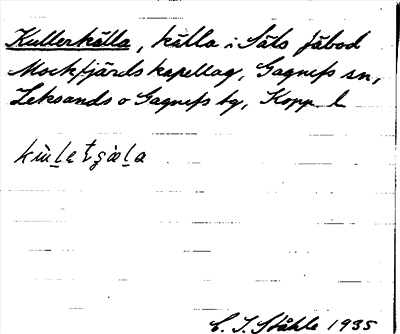 Kullerkälla, källa i Säls fäbod
Mockfjärds kapellag, Gagnefs sn,
Leksands o Gagnefs tg, Kopp. l
C. I. Ståhle 1935